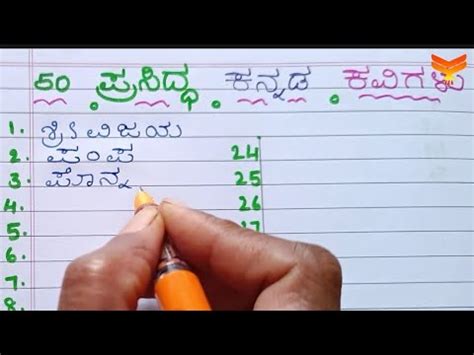 50 ಪ್ರಸಿದ್ಧ ಕನ್ನಡ ಕವಿಗಳು
1. ಶ್ರೀ ವಿಜಯ
2. ಪಂಪ 24
3. ಪೊನ್ನ 25
4. 26
5.
7.
8.